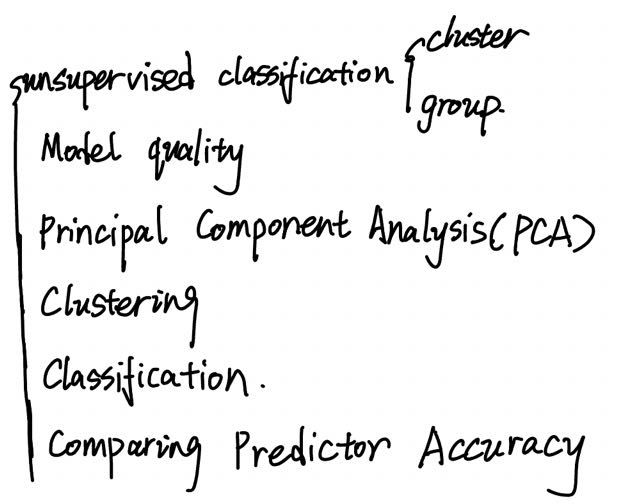 cluster
unsupervised classification
group.
Model quality
Principal Component Analysis (PCA)
Clustering
Classification.
Comparing Predictor Accuracy